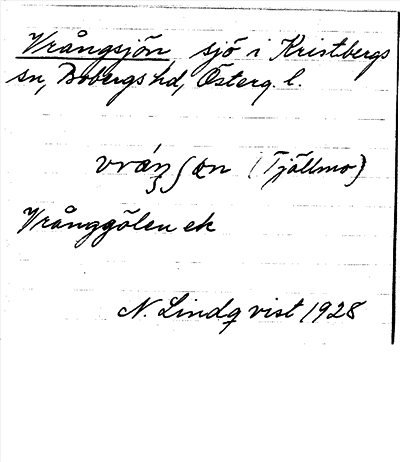 Vrångsjön sjö i Kristbergs
sn, Bobergs hd, Österg. l.
(Tjällmo)
Vrånggölen ek
N. Lindqvist 1928